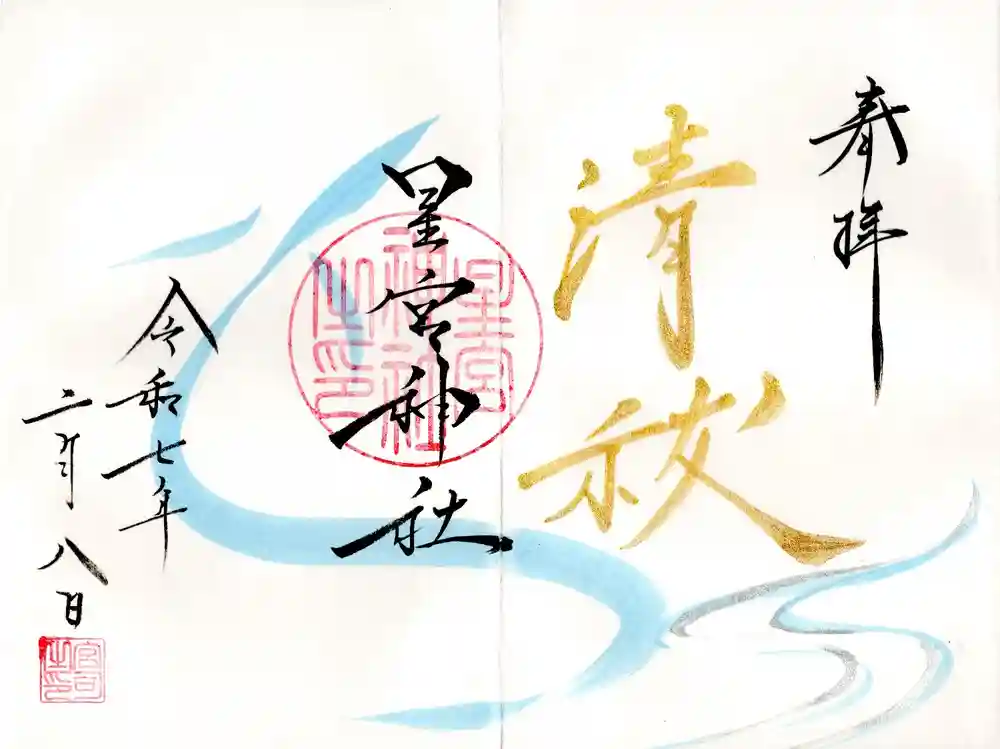 奉拝
清祓
星宮神社
星宮
神社
之印
令和七年
二月八日
宮司
之印